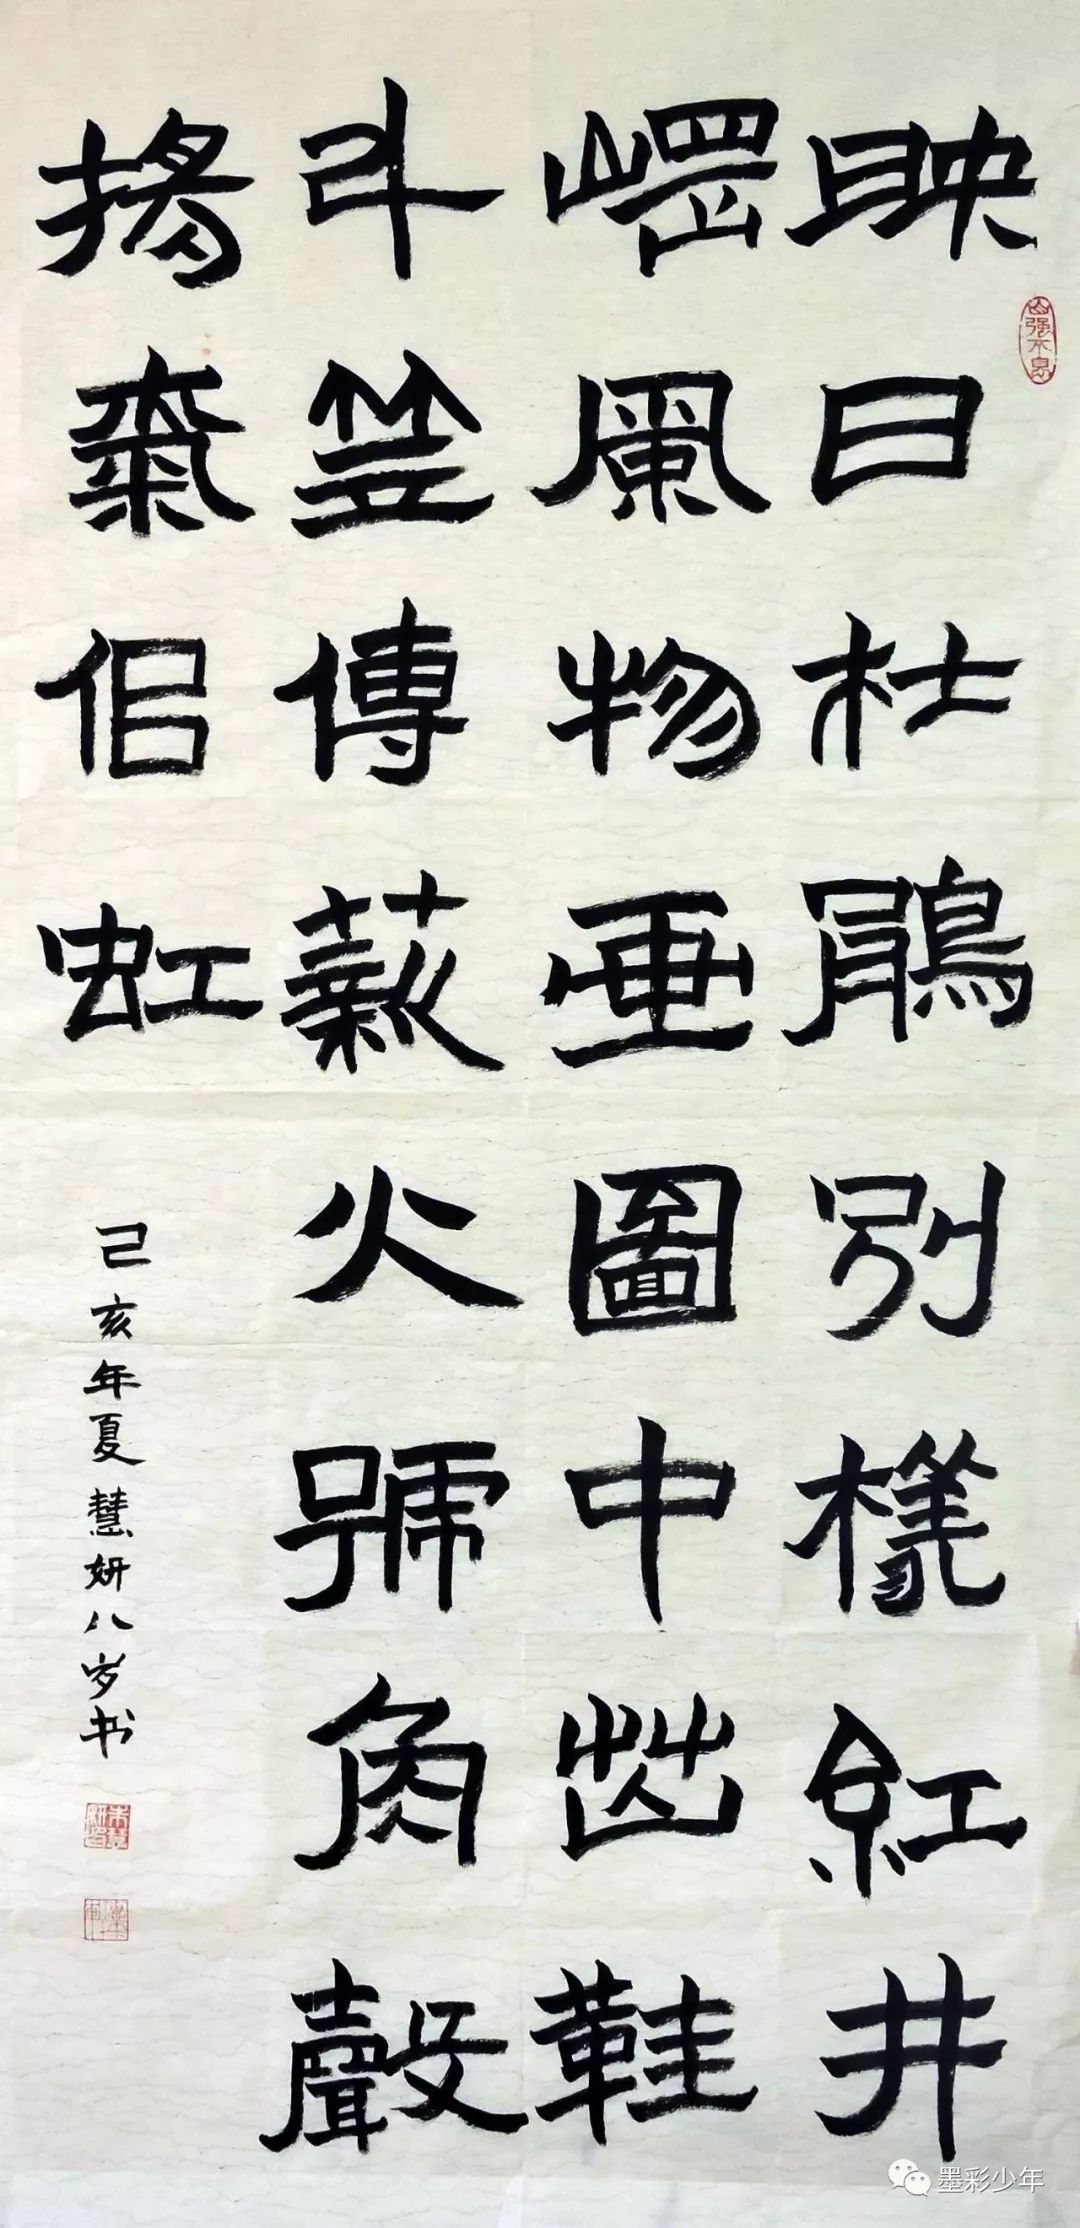 映日杜鵑別樣紅井
崗風物画圖中草鞋
斗笠傳薪火號角聲
揚氣佀虹
己亥年夏慧妍八岁书
自强不息
墨彩少年